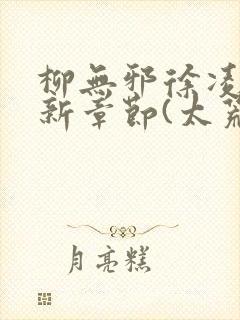 柳無邪徐凌
新章節(太荒
月亮糕